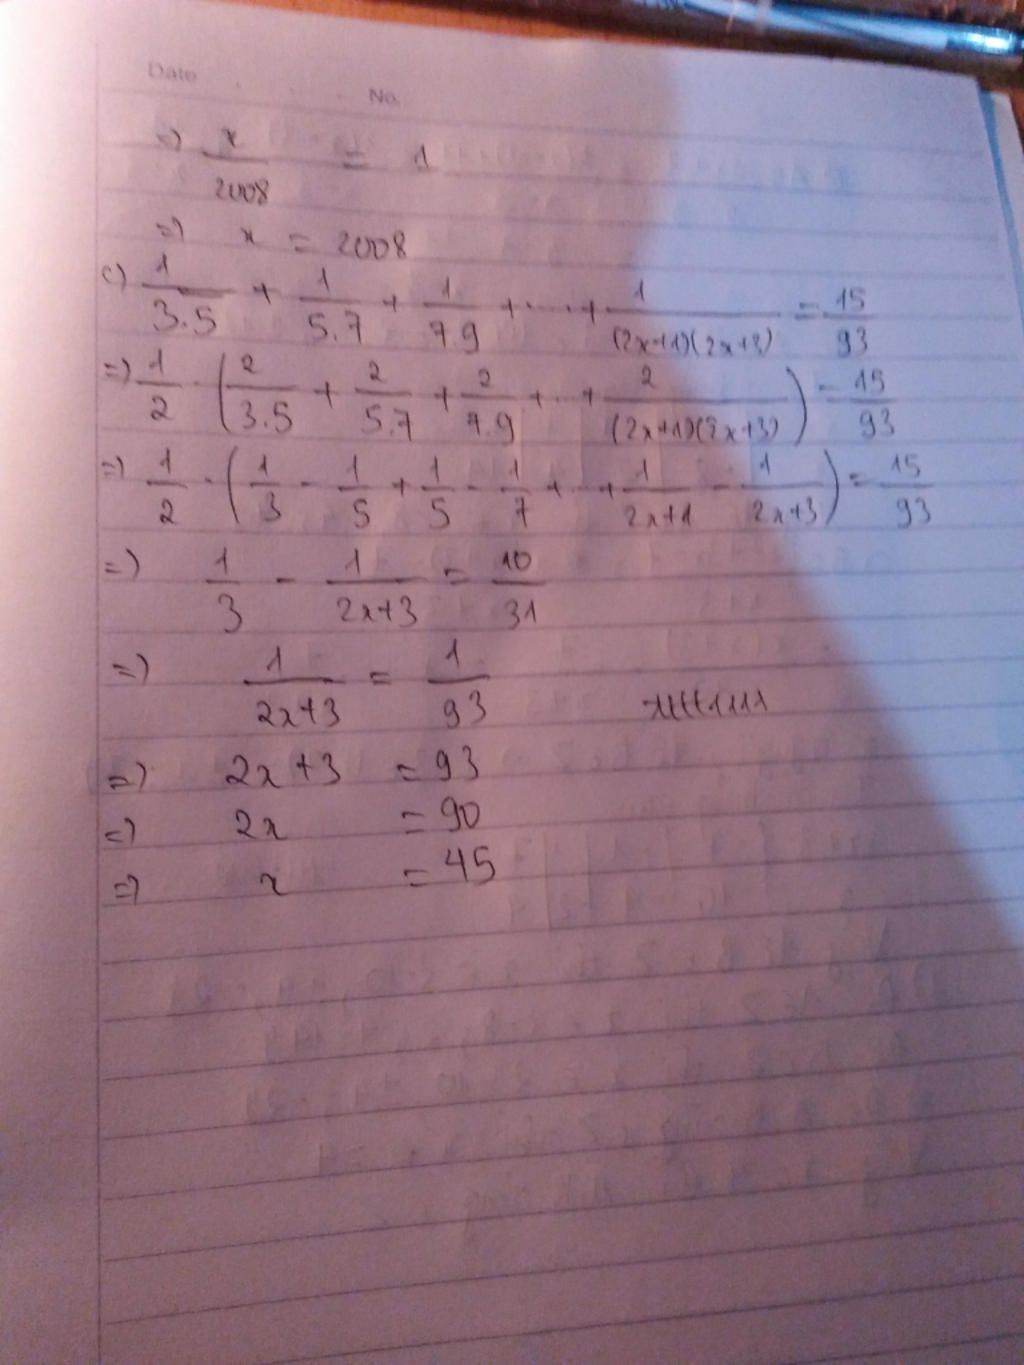 Date No.
=) x/2008 = 1
=) x = 2008
c) 1/3.5 + 1/5.7 + 1/7.9 + ... + 1/(2x+1)(2x+3) = 15/93
=) 1/2 . (2/3.5 + 2/5.7 + 2/7.9 + ... + 2/(2x+1)(2x+3)) = 15/93
=) 1/2 . (1/3 - 1/5 + 1/5 - 1/7 + ... + 1/2x+1 - 1/2x+3) = 15/93
=) 1/3 - 1/2x+3 = 10/31
=) 1/2x+3 = 1/93
=) 2x+3 = 93
=) 2x = 90
=) x = 45